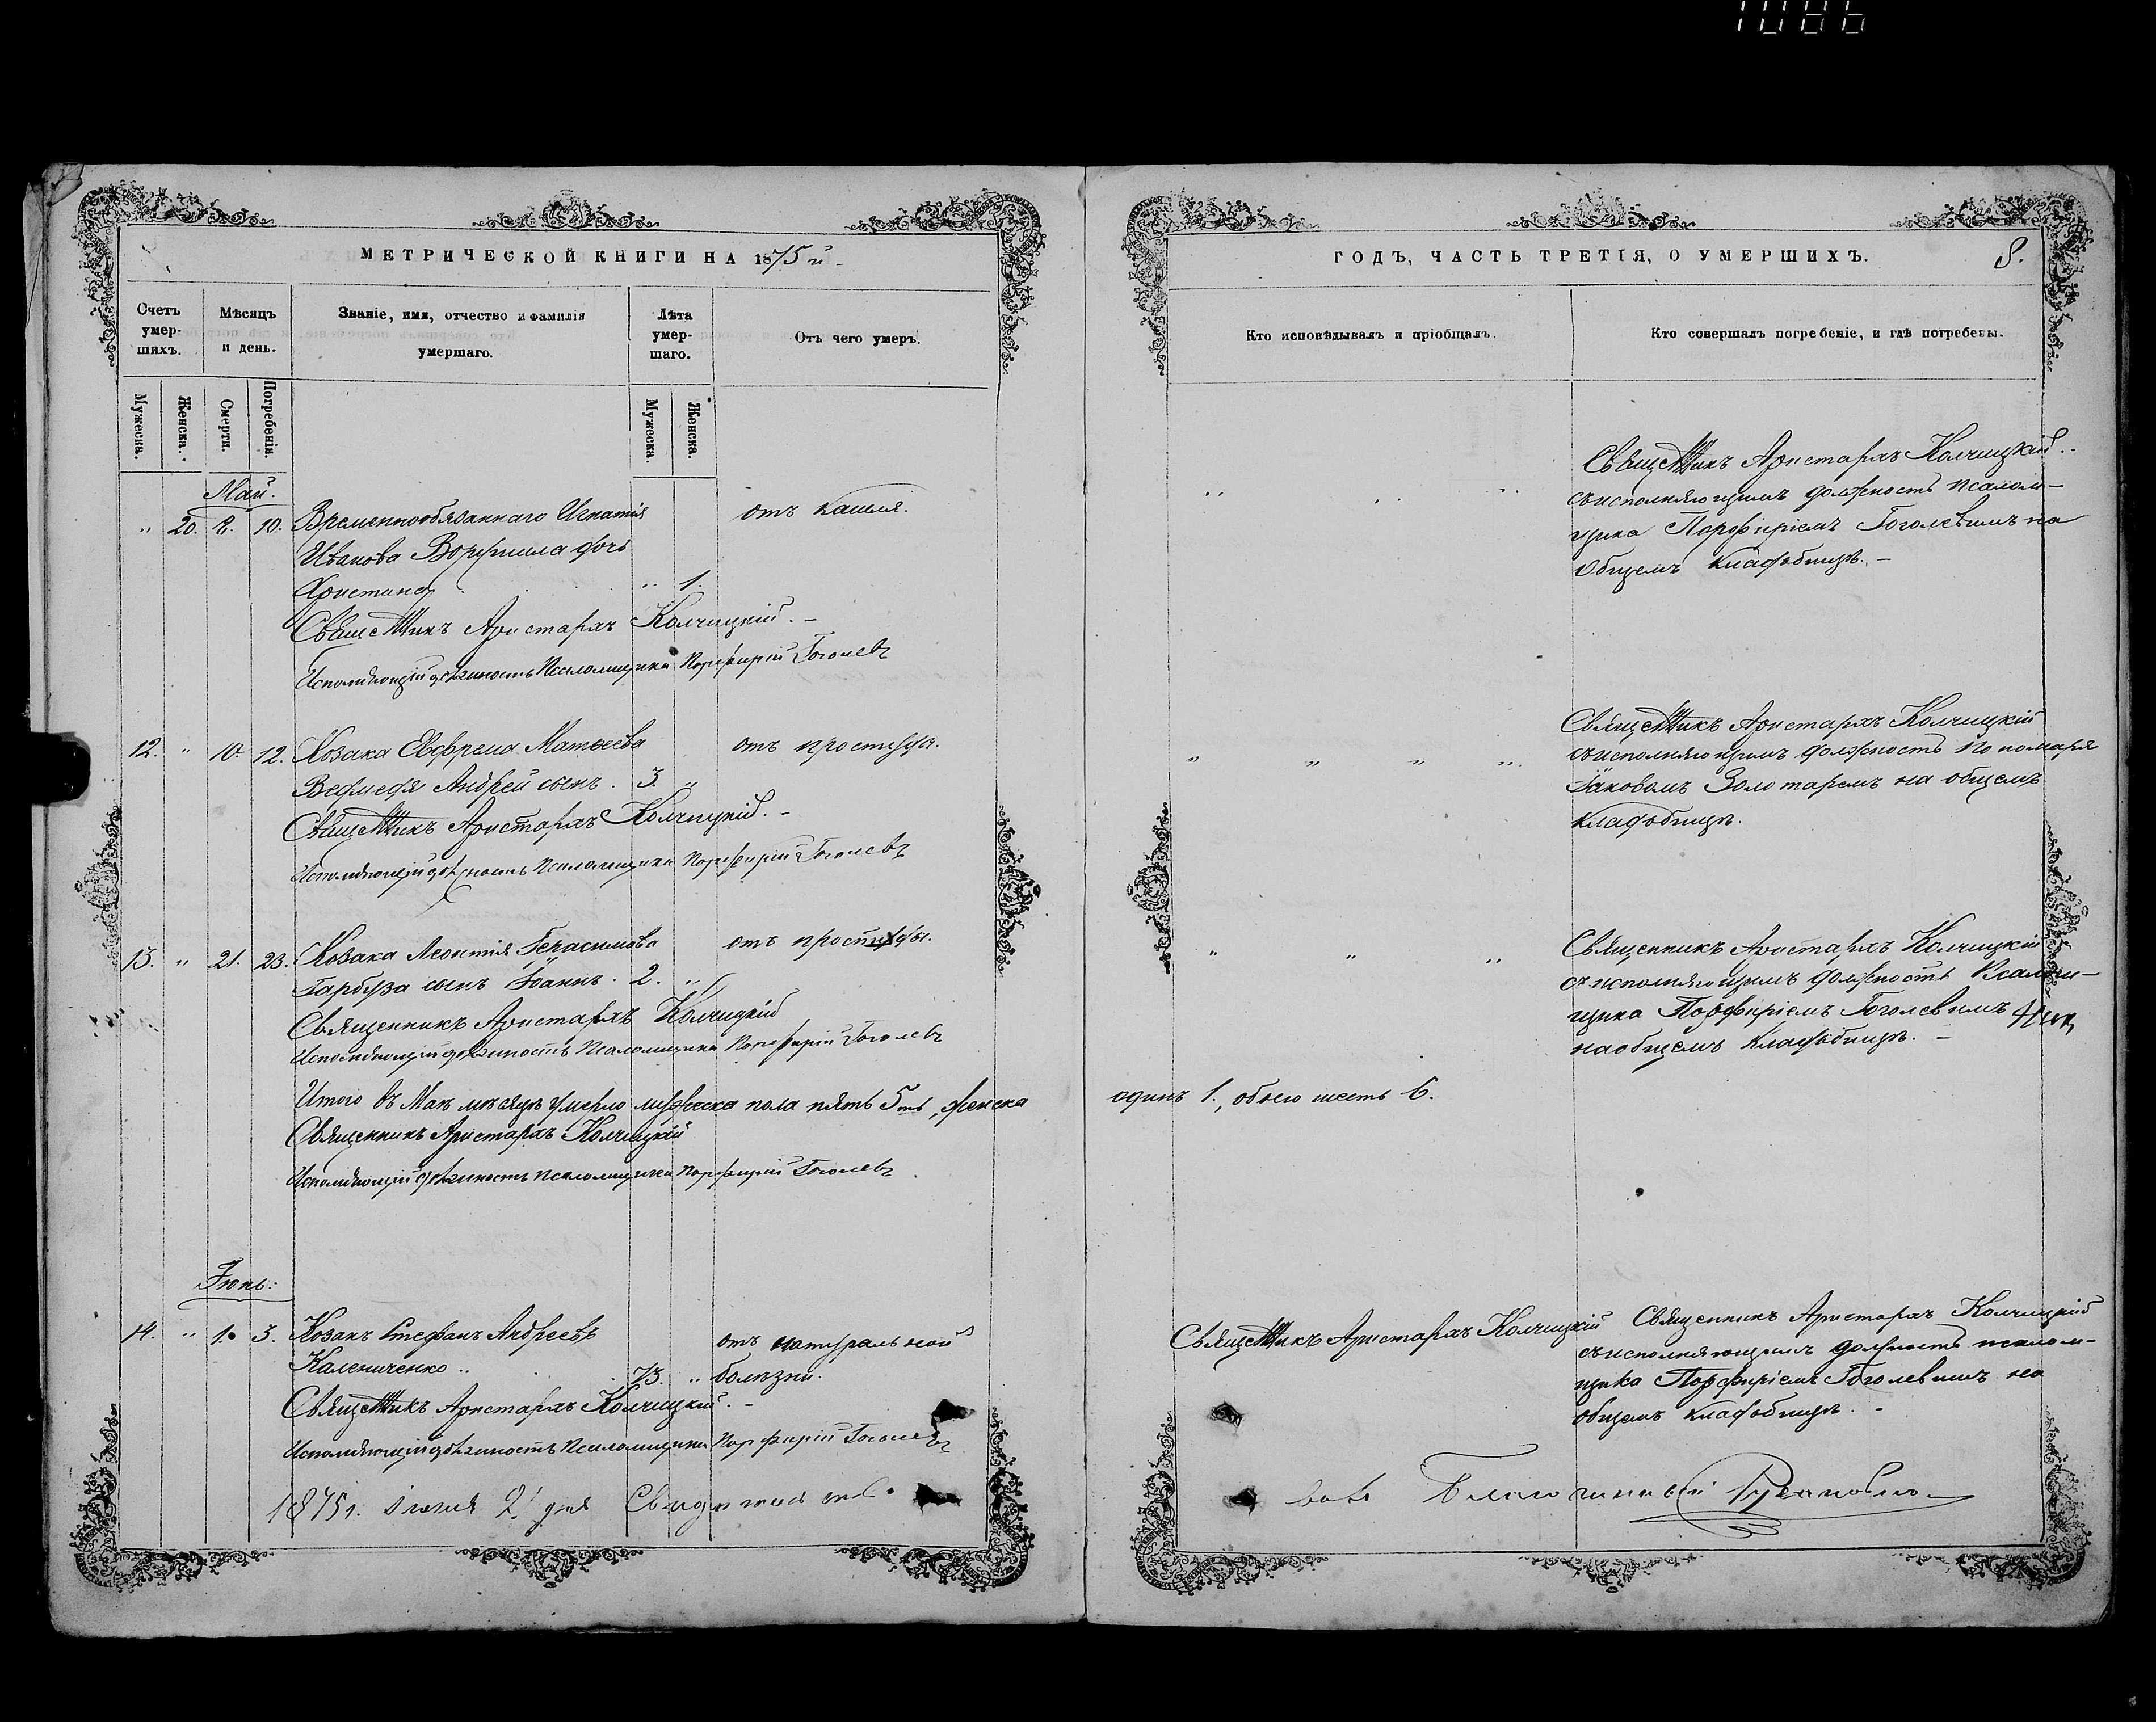 1086
МЕТРИЧЕСКОЙ КНИГИ НА 1875 й
Счетъ умер-шихъ.
Мѣсяцъ и день.
Званіе, имя, отчество и фамилія умершаго.
Лѣта умер-шаго.
Отъ чего умеръ.
Мужеска.
Женска.
Смерти.
Погребенія.
Мужеска.
Женска.
Май.
" 20. 8. 10. Временнообязаннаго Игнатія отъ кашля.
Иванова дочь
Христина " 1.
Священникъ Аристархъ Колчицкій. –
Исполняющій должность Псаломщика Порфирій Гоголевъ
12. " 10. 12. Козака Евфрема Матѳеева отъ простуды.
Андрей сынъ. 3. "
Священникъ Аристархъ Колчицкій. –
Исполняющій должность Псаломщика Порфирій Гоголевъ
13. " 21. 23. Козака Леонтія Герасимова отъ простуды.
Гарбуза сынъ Іоаннъ. 2. "
Священникъ Аристархъ Колчицкій
Исполняющій должность Псаломщика Порфирій Гоголевъ
Итого въ Маѣ мѣсяцѣ умерло мужеска пола пять 5ть, женска
Священникъ Аристархъ Колчицкій
Исполняющій должность псаломщика Порфирій Гоголевъ
Іюнь:
14. " 1. 3. Козакъ Стефанъ Андреевъ отъ натуральной
Калениченко 73. " болѣзни.
Священникъ Аристархъ Колчицкій. –
Исполняющій должность Псаломщика Порфирій Гоголевъ
1875 г. Іюня 2 дня Свидѣтельст-
ГОДЪ, ЧАСТЬ ТРЕТІЯ, О УМЕРШИХЪ.
8.
Кто исповѣдывалъ и пріобщалъ.
Кто совершалъ погребеніе, и гдѣ погребены.
Священникъ Аристархъ Колчицкій
съ исполняющимъ должность псалом-
щика Порфиріемъ Гоголевымъ на
общемъ кладбищѣ. –
Священникъ Аристархъ Колчицкій
съ исполняющимъ должность пономаря
Іаковомъ Золотаремъ на общемъ
кладбищѣ.
Священникъ Аристархъ Колчицкій
съ исполняющимъ должность Псалом-
щика Порфиріемъ Гоголевымъ
на общемъ Кладбищѣ. –
одинъ 1., обоего шесть 6.
Священникъ Аристархъ Колчицкій
Священникъ Аристархъ Колчицкій
съ исполняющимъ должность псалом-
щика Порфиріемъ Гоголевымъ на
общемъ кладбищѣ. –
валъ Благочинный